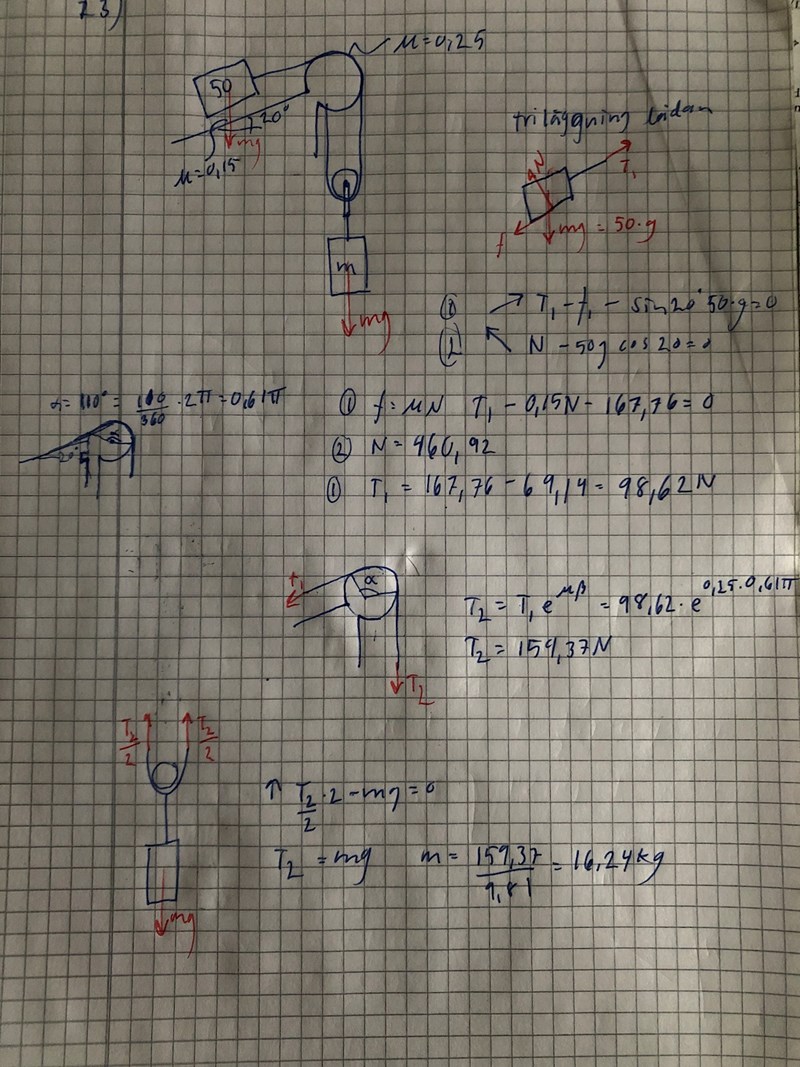 23)
μ=0,25
50
20°
mg
μ=0,15
friläggning
N
T₁
f
mg = 50·g
m
mg
① ↗ T₁ - f₁ - sin20° 50·g=0
② ↖ N - 50g cos20=0
α= 110° = 110/360 · 2π = 0,61π
α
20°
① f=μN T₁ - 0,15N - 167,76 = 0
② N = 460,92
① T₁ = 167,76 - 69,14 = 98,62N
T₁
α
T₂
T₂ = T₁ e^μβ = 98,62 · e^0,25·0,61π
T₂ = 159,37N
T₂/2 T₂/2
↑ T₂/2 · 2 - mg = 0
T₂ = mg m = 159,37/9,81 = 16,24kg
mg